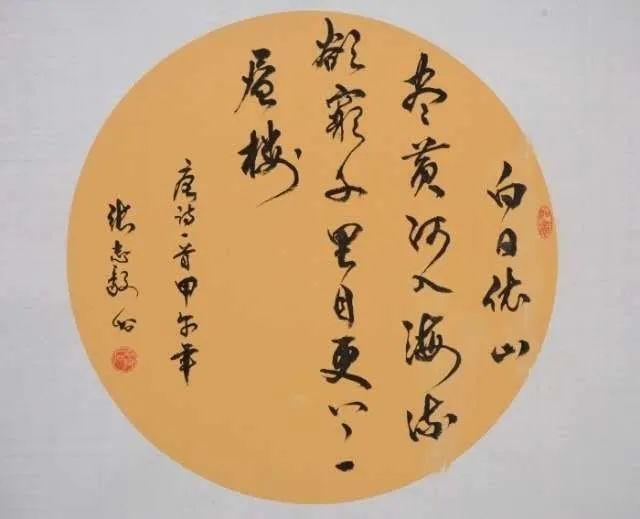 白日依山
尽黄河入海流
欲穷千里目更上一
层楼
唐诗一首甲午年
张志毅书